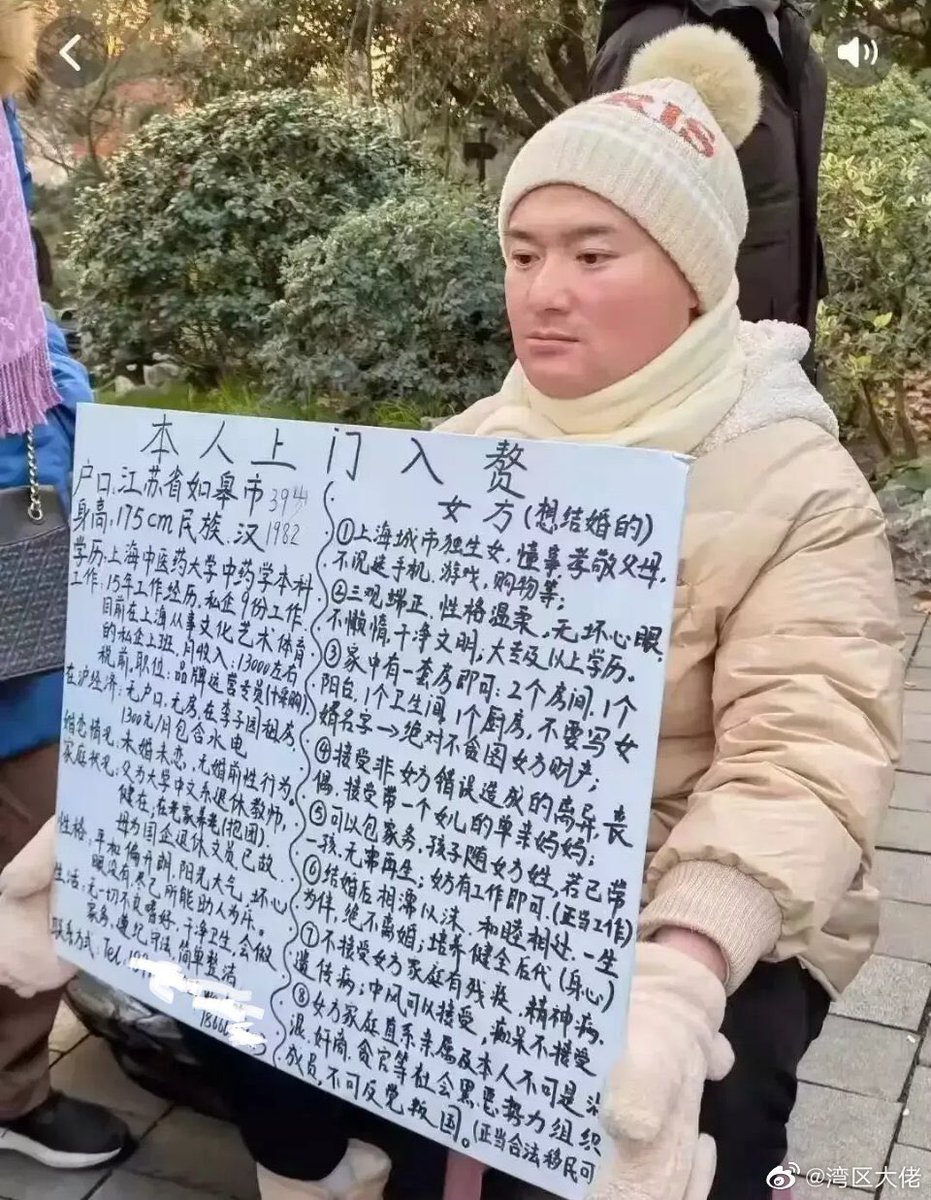 KIS
本人上门入赘
户口:江苏省如皋市 39岁
身高:175cm 民族:汉 1982
学历:上海中医药大学中药学本科
工作:15年工作经历,私企9份工作,
目前在上海从事文化艺术体育
的私企上班,月收入:13000左右
税前,职位:品牌运营专员(计采购)
在沪经济:无户口,无房,在李子园租房,
1300元/月包含水电
婚恋情况:未婚未恋,无婚前性行为。
家庭状况:父为大学中文系退休教师,
健在,在老家养老(抱团).
母为国企退休文员已故
性格:平和偏开朗,阳光大气,坏心
眼没有,尽己所能助人为乐。
生活:无一切不良嗜好,干净卫生,会做
家务,遵纪守法,简单整洁
联系方式:Tel:
女方(想结婚的)
①上海城市独生女,懂事,孝敬父母,
不沉迷手机,游戏,购物等;
②三观端正,性格温柔,无坏心眼,
不懒惰,干净文明,大专及以上学历。
③家中有一套房即可:2个房间,1个
阳台,1个卫生间,1个厨房,不要写女
婿名字→绝对不贪图女方财产;
④接受非女方错误造成的离异,丧
偶,接受带一个女儿的单亲妈妈;
⑤可以包家务,孩子随女方姓,若已带
一孩,无需再生;女方有工作即可.(正当工作)
⑥结婚后相濡以沫,和睦相处,一生
为伴,绝不离婚;培养健全后代(身心)
⑦不接受女方家庭有残疾,精神病,
遗传病;中风可以接受,痴呆不接受
⑧女方家庭直系亲属及本人不可是流
氓,奸商,贪官等社会黑恶势力组织
成员,不可反党叛国。(正当合法移民可
@湾区大佬